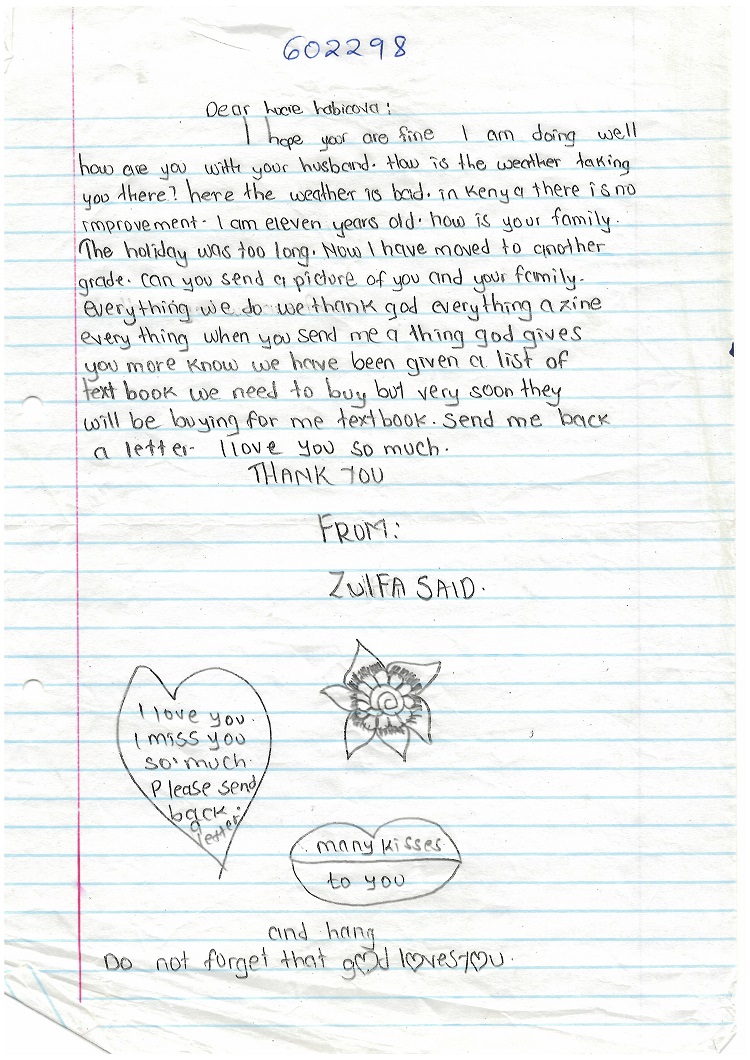 602298
Dear lucie habicova:
I hope your are fine I am doing well
how are you with your husband. How is the weather taking
you there? here the weather is bad. in Kenya there is no
improvement. I am eleven years old. how is your family.
The holiday was too long. Now I have moved to another
grade. can you send a picture of you and your family.
everything we do we thank god everything a zine
every thing when you send me a thing god gives
you more know we have been given a list of
text book we need to buy but very soon they
will be buying for me textbook. Send me back
a letter- I love you so much.
THANK YOU
FROM:
ZulFA SAID.
I love you.
I miss you
so much.
Please send
back.
letter
many kisses
to you
and hang
Do not forget that god loves you.